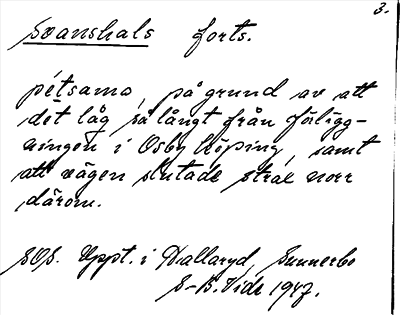 3.
Svanshals forts.
pétsamo, på grund av att
det låg så långt från förligg-
ningen i Osby köping, samt
att vägen slutade strax norr
därom.
SOS. Uppt. i Hallaryd, Sunnerbo
S-B. Vide 1947.